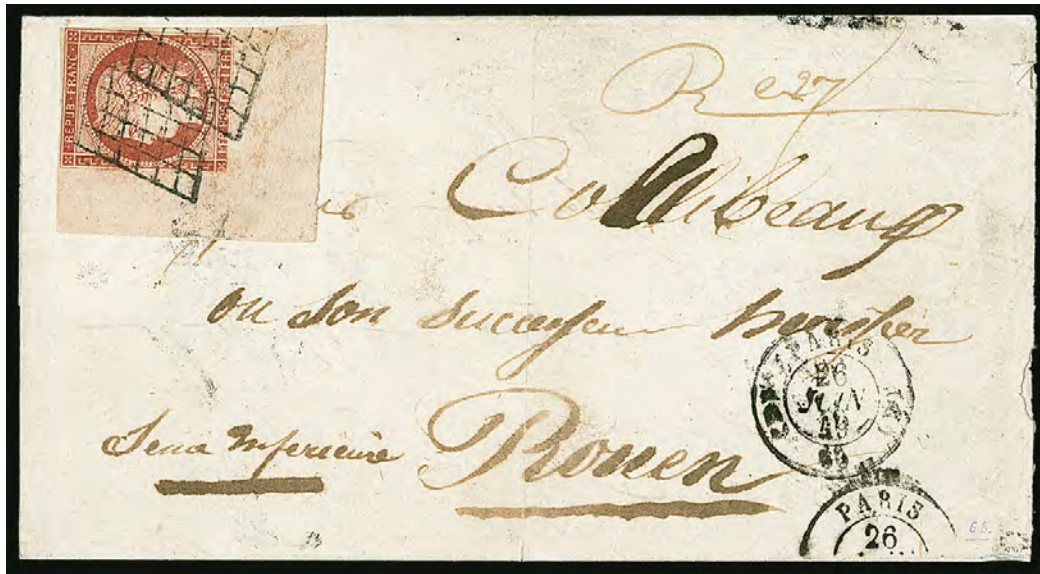 REPUB·FRANC·
R e 27
Collibeaux
ou son successeur huissier
Seine Inférieure Rouen
PARIS
26
JUIN
49
PARIS
26